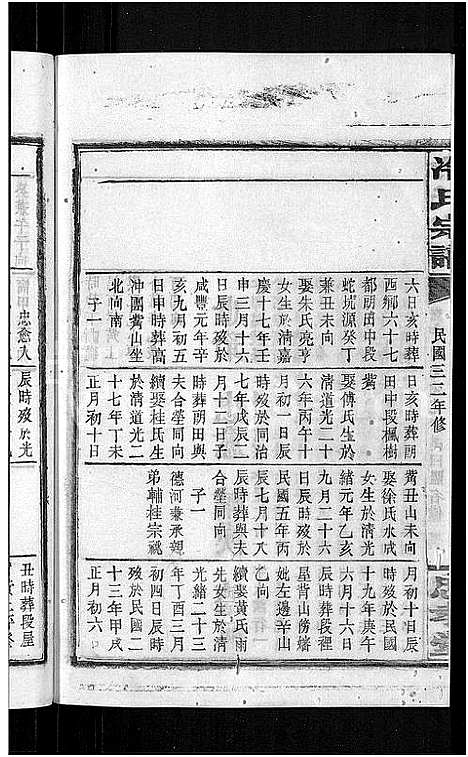 冷氏宗譜
民國三二年修
六日亥時葬
西鄉六十七
都萠田中段
蛇坑源癸丁
兼丑未向
娶朱氏亮亨
女生於清嘉
慶十七年壬
申三月十六
日辰時歿於
咸豐元年辛
亥九月初五
日申時葬高
沖團篢山坐
北向南
子一
日亥時葬萠
田中段楓樹
篢
娶傅氏生於
清道光二十
六年丙午十
月初一日辰
時歿於同治
七年戊辰二
月十二日子
時葬萠田與
夫合塋同向
續娶桂氏生
清道光二
十七年丁未
正月初十日
篢丑山未向
娶徐氏水成
女生於清光
緒元年乙亥
九月二十六
日辰時歿於
民國五年丙
辰七月十八
辰時葬與夫
合塋同向
子一
德河兼承親
弟輔桂宗祧
月初十日辰
時歿於民國
十九年庚午
六月十六日
辰時葬段裡
屋背山傍𡎺
妣左邊辛山
乙向
續娶黃氏雨
先女生於清
光緒二十三
年丁酉三月
初四日辰時
歿於民國二
十三年甲戌
正月初六
忠愈人
辰時歿於光
丑時葬段屋